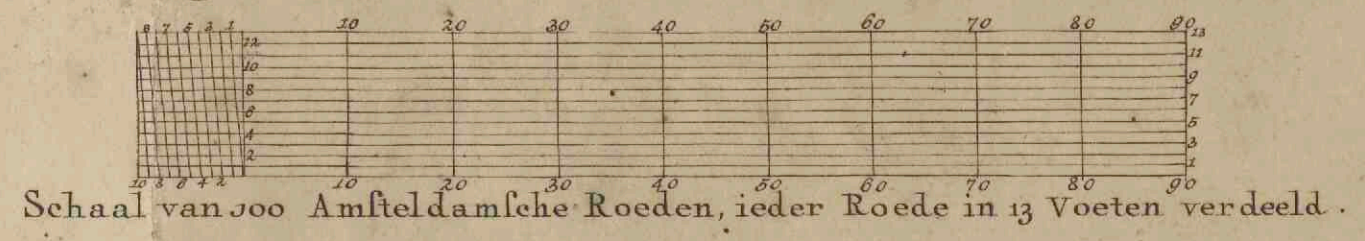 8 7 5 3 1 10 20 30 40 50 60 70 80 90
12 13
10 11
8 9
6 7
4 5
2 3
1
10 8 6 4 2 10 20 30 40 50 60 70 80 90
Schaal van 100 Amſteldamſche Roeden, ieder Roede in 13 Voeten verdeeld.